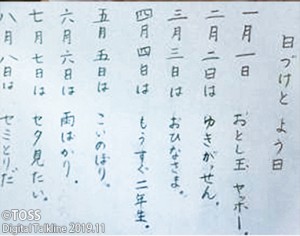 日づけとよう日
一月一日 おとし玉 ヤッホー。
二月二日は ゆきがっせん。
三月三日は おひなさま。
四月四日は もうすぐ二年生。
五月五日は こいのぼり。
六月六日は 雨ばかり。
七月七日は 七夕見たい。
八月八日は セミとりだ
©TOSS
Digital Talkline 2019.11